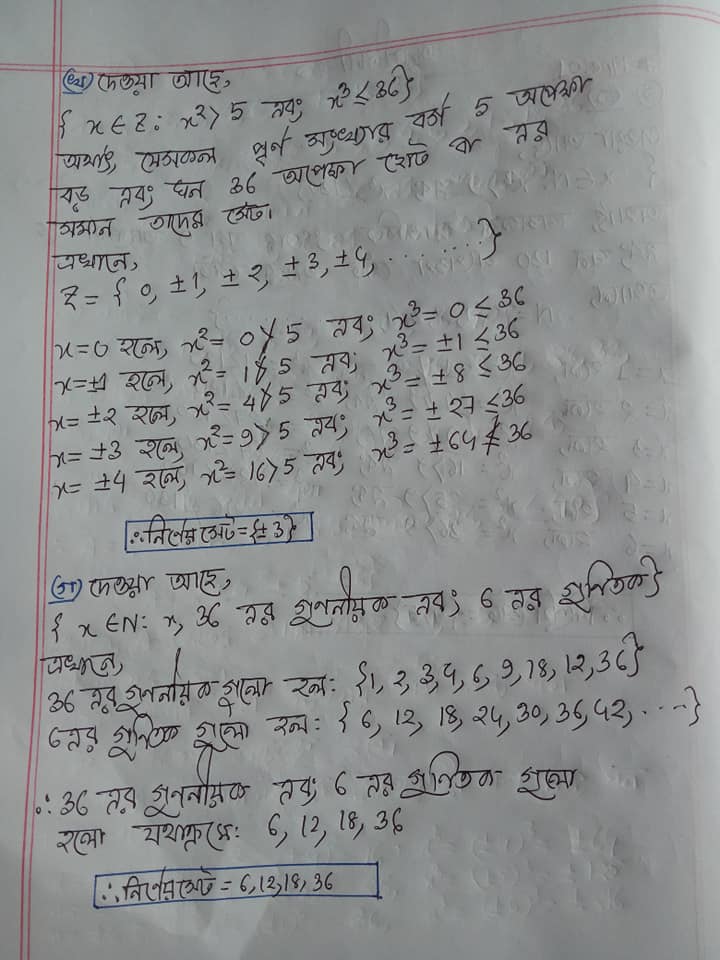 (খ) দেওয়া আছে,
{ x ∈ Z : x² > 5 এবং x³ ≤ 36}
অর্থাৎ, যেসকল পূর্ণ সংখ্যার বর্গ 5 অপেক্ষা
বড় এবং ঘন 36 অপেক্ষা ছোট বা এর
সমান তাদের সেট।
এখানে,
Z = { 0, ±1, ±2, ±3, ±4, ........}
x=0 হলে, x² = 0 ≯ 5 এবং x³ = 0 ≤ 36
x=±1 হলে, x² = 1 ≯ 5 এবং x³ = ±1 ≤ 36
x= ±2 হলে, x² = 4 ≯ 5 এবং x³ = ±8 ≤ 36
x= ±3 হলে, x² = 9 > 5 এবং x³ = ±27 ≤ 36
x= ±4 হলে, x² = 16 > 5 এবং x³ = ±64 ≰ 36
∴ নির্ণেয় সেট = {±3}
(গ) দেওয়া আছে,
{ x ∈ N : x, 36 এর গুণনীয়ক এবং 6 এর গুণিতক}
এখানে,
36 এর গুণনীয়ক গুলো হল: {1, 2, 3, 4, 6, 9, 18, 12, 36}
6 এর গুণিতক গুলো হল: { 6, 12, 18, 24, 30, 36, 42, ....}
∴ 36 এর গুণনীয়ক এবং 6 এর গুণিতক গুলো
হলো যথাক্রমে: 6, 12, 18, 36
∴ নির্ণেয় সেট = 6, 12, 18, 36